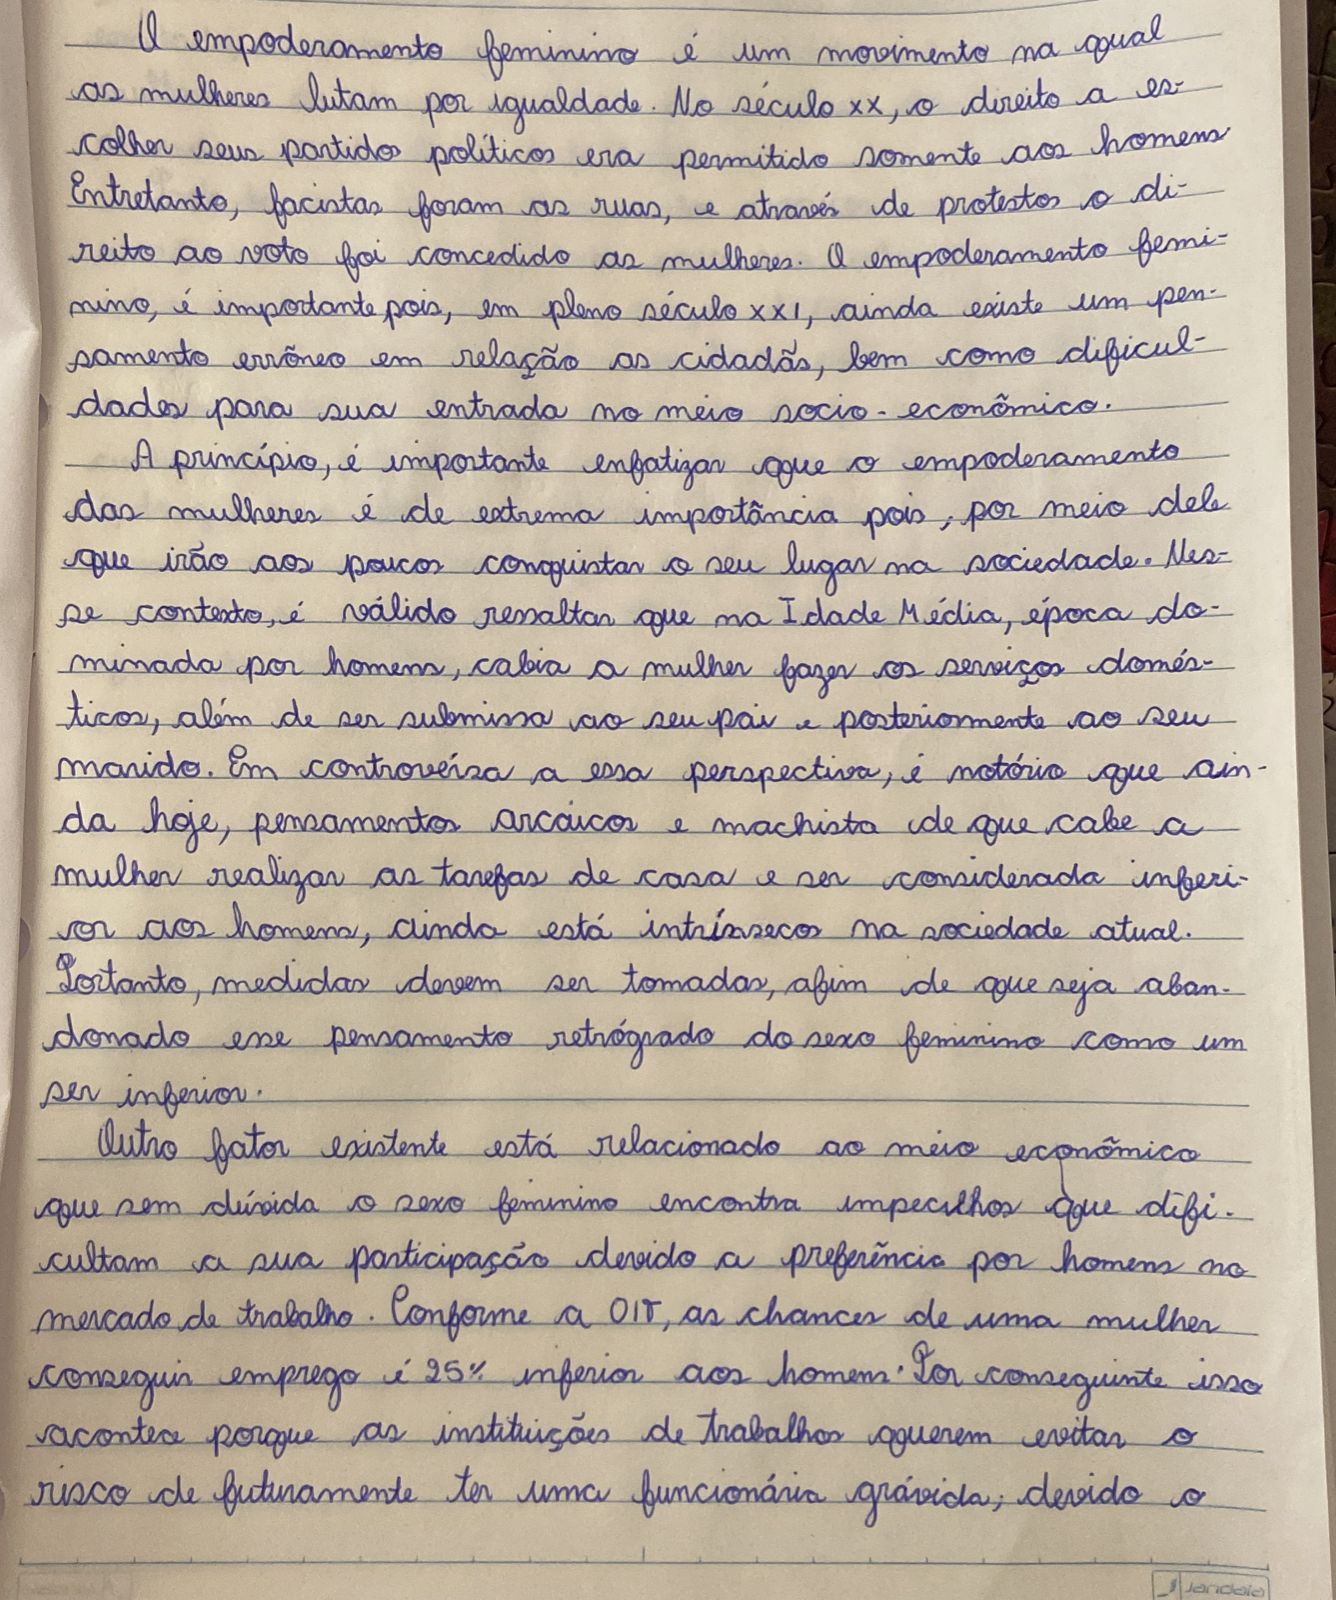 O empoderamento feminino é um movimento na qual
as mulheres lutam por igualdade. No século XX, o direito a es-
colher seus partidos políticos era permitido somente aos homens
Entretanto, facistas foram as ruas, e através de protestos o di-
reito ao voto foi concedido as mulheres. O empoderamento femi-
nino, é importante pois, em pleno século XXI, ainda existe um pen-
samento errôneo em relação as cidadãs, bem como dificul-
dades para sua entrada no meio socio-econômico.
A princípio, é importante enfatizar que o empoderamento
das mulheres é de extrema importância pois, por meio dele
que irão aos poucos conquistar o seu lugar na sociedade. Nes-
se contexto, é válido ressaltar que na Idade Média, época do-
minada por homens, cabia a mulher fazer os serviços domés-
ticos, além de ser submissa ao seu pai e posteriormente ao seu
marido. Em controvérsa a essa perspectiva, é notório que ain-
da hoje, pensamentos arcaicos e machista de que cabe a
mulher realizar as tarefas de casa e ser considerada inferi-
or aos homens, ainda está intrínsecos na sociedade atual.
Portanto, medidas devem ser tomadas, afim de que seja aban-
donado esse pensamento retrógrado do sexo feminino como um
ser inferior.
Outro fator existente está relacionado ao meio econômico
que sem dúvida o sexo feminino encontra impecilhos que difi-
cultam a sua participação devido a preferência por homens no
mercado de trabalho. Conforme a OIT, as chances de uma mulher
conseguir emprego é 25% inferior aos homens. Por conseguinte isso
acontece porque as instituições de trabalhos querem evitar o
risco de futuramente ter uma funcionária grávida, devido o
Jandaia